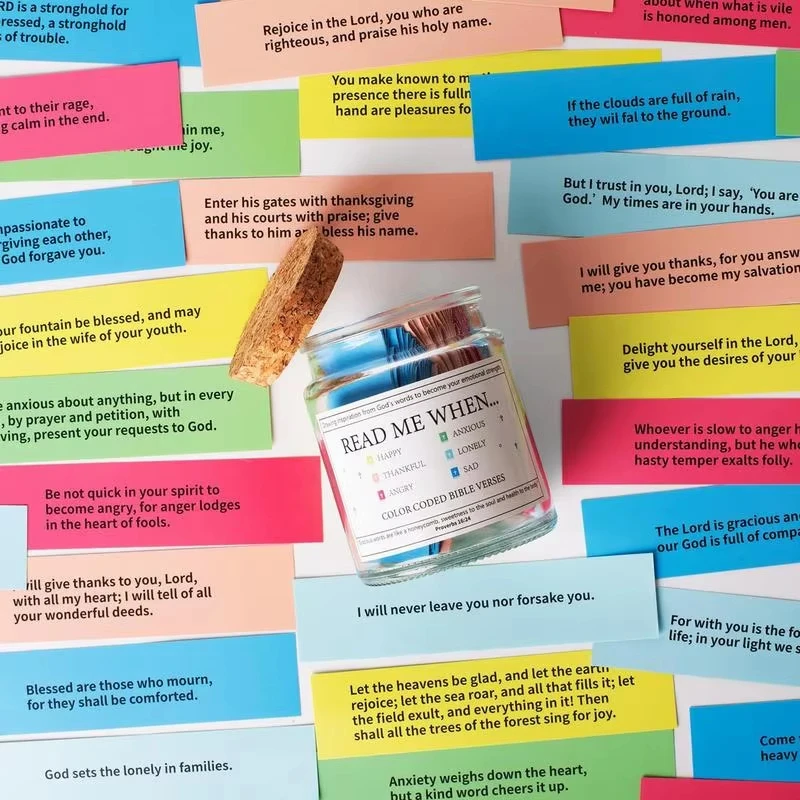 RD is a stronghold for
ressed, a stronghold
s of trouble.
Rejoice in the Lord, you who are
righteous, and praise his holy name.
about when what is vile
is honored among men.
nt to their rage,
g calm in the end.
in me,
me joy.
You make known to m
presence there is fulln
hand are pleasures fo
If the clouds are full of rain,
they wil fal to the ground.
But I trust in you, Lord; I say, ‘You are
God.’ My times are in your hands.
Enter his gates with thanksgiving
and his courts with praise; give
thanks to him and bless his name.
mpassionate to
rgiving each other,
God forgave you.
I will give you thanks, for you answ
me; you have become my salvation
our fountain be blessed, and may
joice in the wife of your youth.
Delight yourself in the Lord,
give you the desires of your
e anxious about anything, but in every
, by prayer and petition, with
ving, present your requests to God.
Drawing inspiration from God's words to become your emotional strength
READ ME WHEN...
HAPPY
THANKFUL
ANGRY
ANXIOUS
LONELY
SAD
COLOR CODED BIBLE VERSES
Gracious words are like a honeycomb, sweetness to the soul and health to the body
Proverbs 16:24
Whoever is slow to anger h
understanding, but he who
hasty temper exalts folly.
Be not quick in your spirit to
become angry, for anger lodges
in the heart of fools.
The Lord is gracious and
our God is full of compa
will give thanks to you, Lord,
with all my heart; I will tell of all
your wonderful deeds.
I will never leave you nor forsake you.
For with you is the fo
life; in your light we s
Blessed are those who mourn,
for they shall be comforted.
Let the heavens be glad, and let the earth
rejoice; let the sea roar, and all that fills it; let
the field exult, and everything in it! Then
shall all the trees of the forest sing for joy.
Come
heavy
God sets the lonely in families.
Anxiety weighs down the heart,
but a kind word cheers it up.